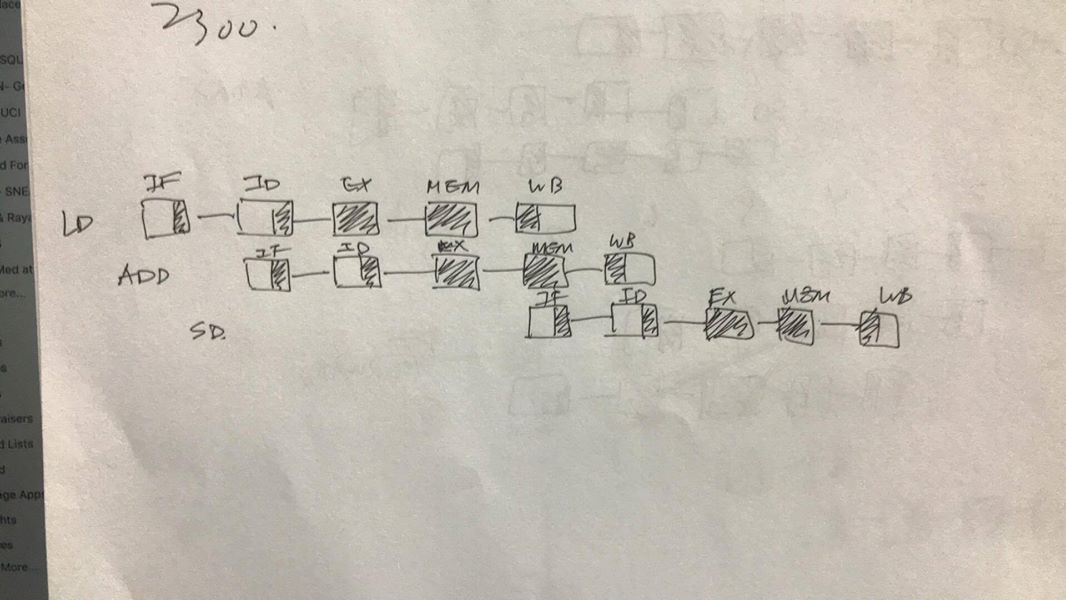 2300.
IF ID EX MEM WB
LD
IF ID EX MEM WB
ADD
IF ID EX MEM WB
SD.
SQL
UCI
SNE
Med at
aisers
d Lists
age Apps
hts
es
More...